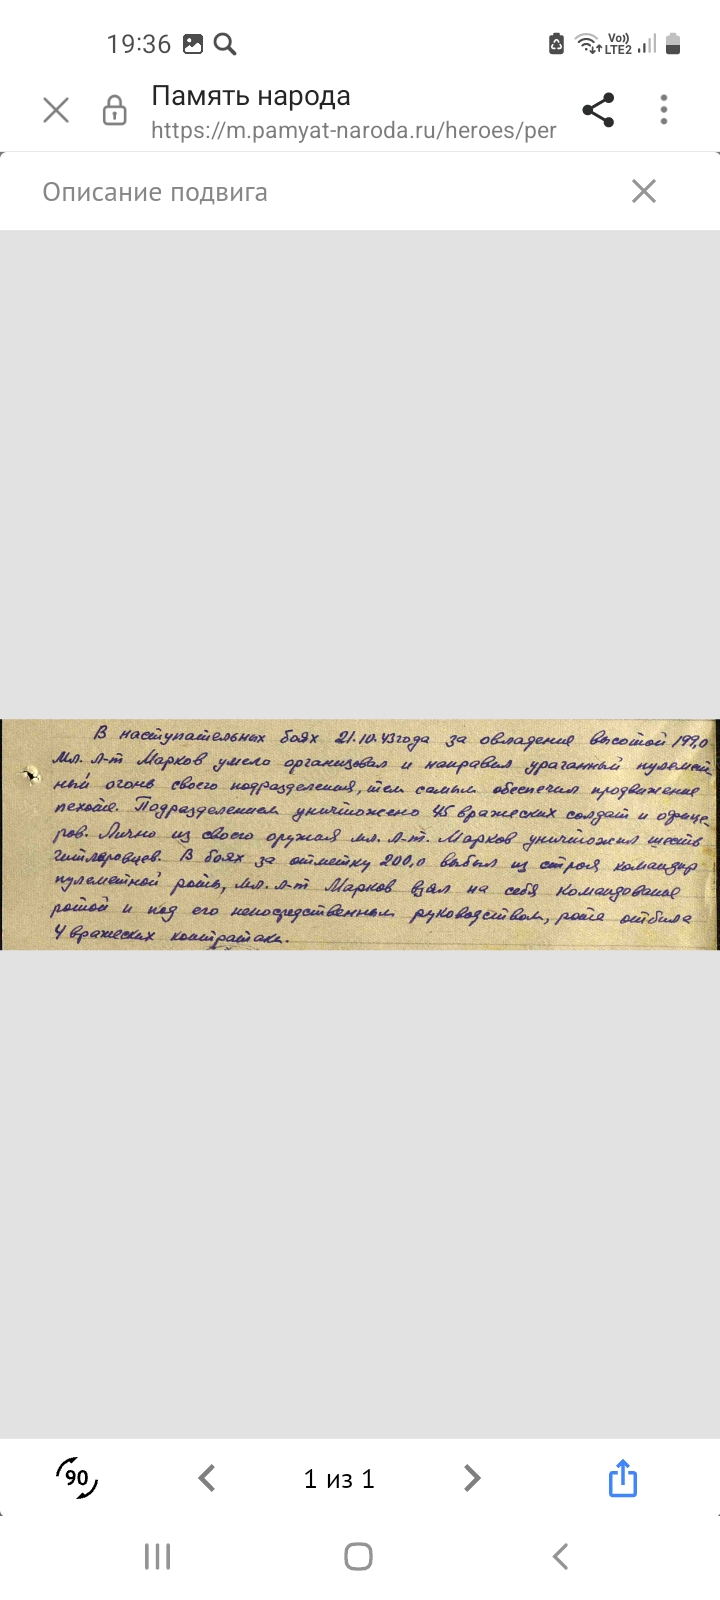 19:36
Vo))
LTE2
Память народа
https://m.pamyat-naroda.ru/heroes/per
Описание подвига
В наступательных боях 21.10.43года за овладение высотой 199,0
Мл. л-т Марков умело организовал и направил ураганный пулемет
ный огонь своего подразделения, тем самым обеспечил продвижение
пехоте. Подразделением уничтожено 45 вражеских солдат и офице
ров. Лично из своего оружия мл. л-т. Марков уничтожил шесть
гитлеровцев. В боях за отметку 200,0 выбыл из строя командир
пулеметной роты, мл. л-т Марков взял на себя командование
ротой и под его непосредственным руководством, рота отбила
4 вражеских контратаки.
90
1 из 1